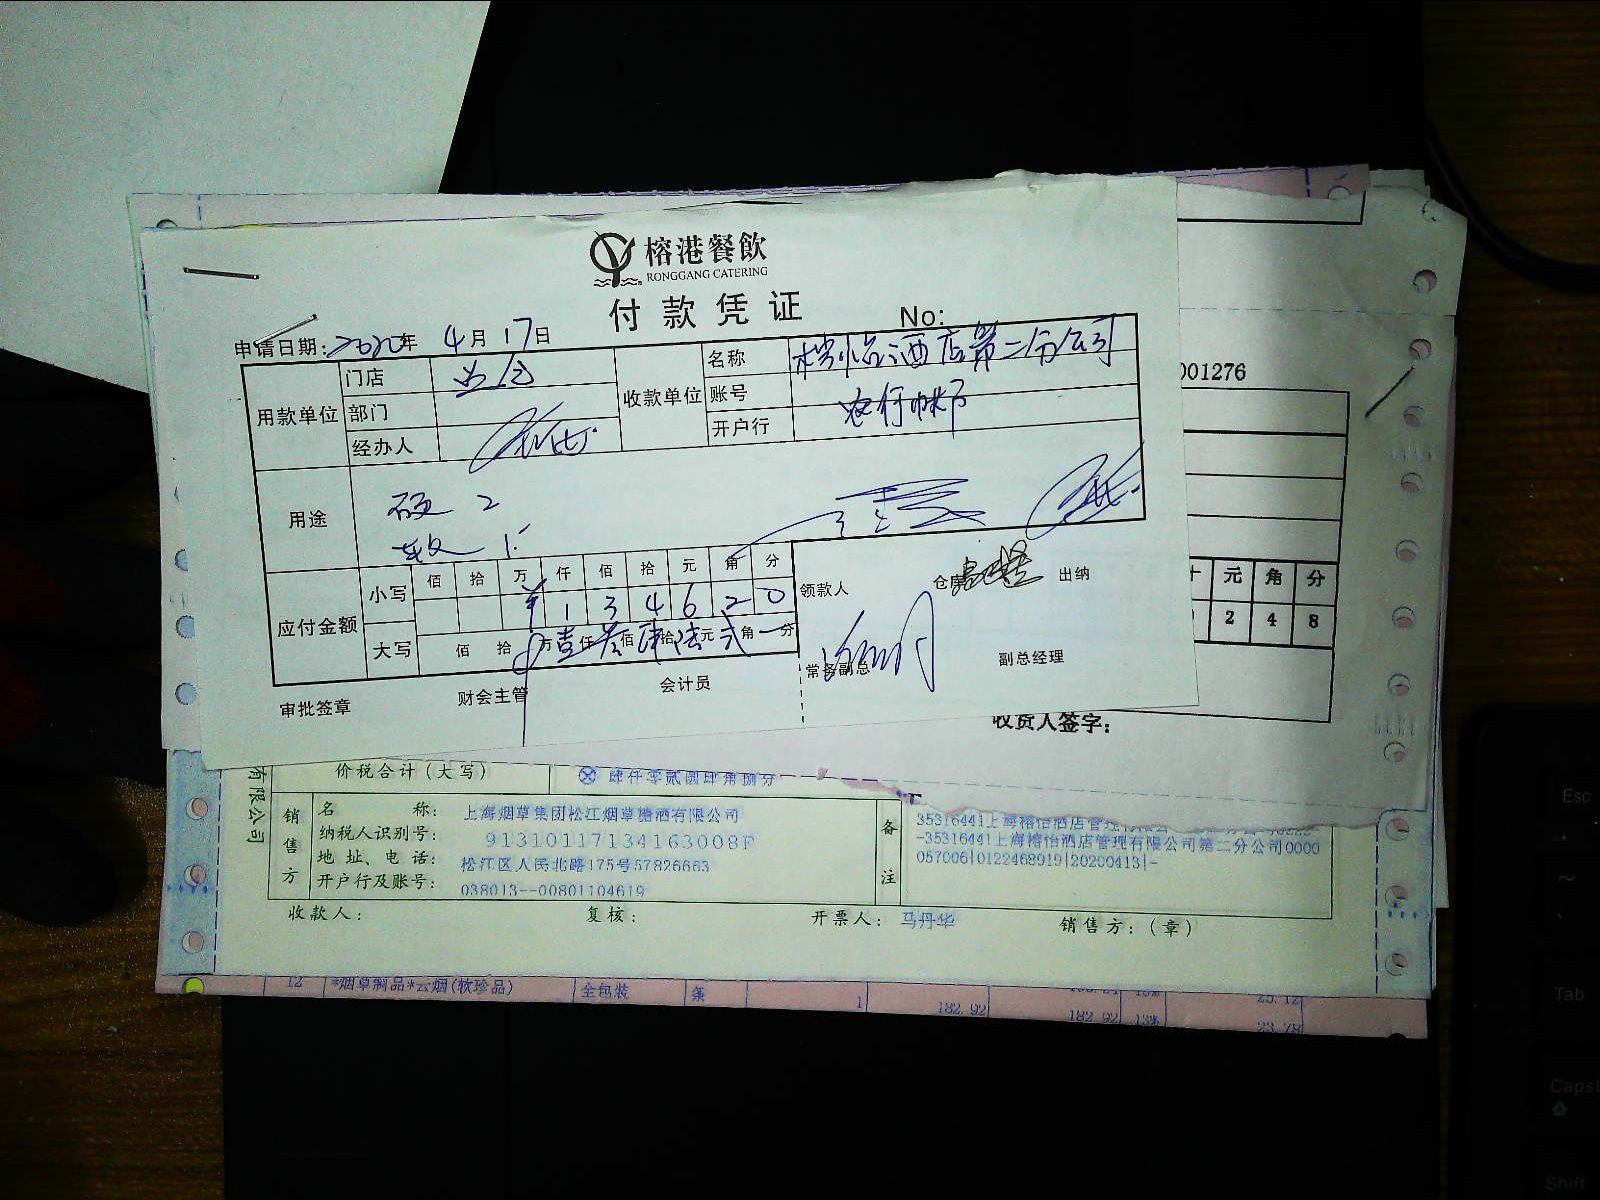 榕港餐飲
RONGGANG CATERING
付款凭证
No:
申请日期: 2020年 4月 17日
用款单位
门店
部门
经办人
收款单位
名称 榕怡酒店第二分公司
账号
开户行
用途
硬 2
软 1
应付金额
小写
佰 拾 万 仟 佰 拾 元 角 分
¥ 1 3 4 6 2 0
大写
佰 拾 万壹仟叁佰肆拾陆元贰角 分
领款人
仓库
出纳
常务副总
副总经理
审批签章
财会主管
会计员
001276
元 角 分
2 4 8
收货人签字:
有限公司
价税合计(大写)
肆仟零贰圆肆角捌分
销售方
名 称: 上海烟草集团松江烟草糖酒有限公司
纳税人识别号: 91310117134163008F
地 址、电 话: 松江区人民北路175号57826663
开户行及账号: 038013--00801104619
备注
-35316441上海榕怡酒店管理有限公司第二分公司0000
057006|0122468919|20200413|-
收款人:
复核:
开票人: 马丹华
销售方:(章)
12 *烟草制品*云烟(软珍品) 全包装 条 1 182.92 182.92 13% 23.78
Esc
Tab
Caps
Shift